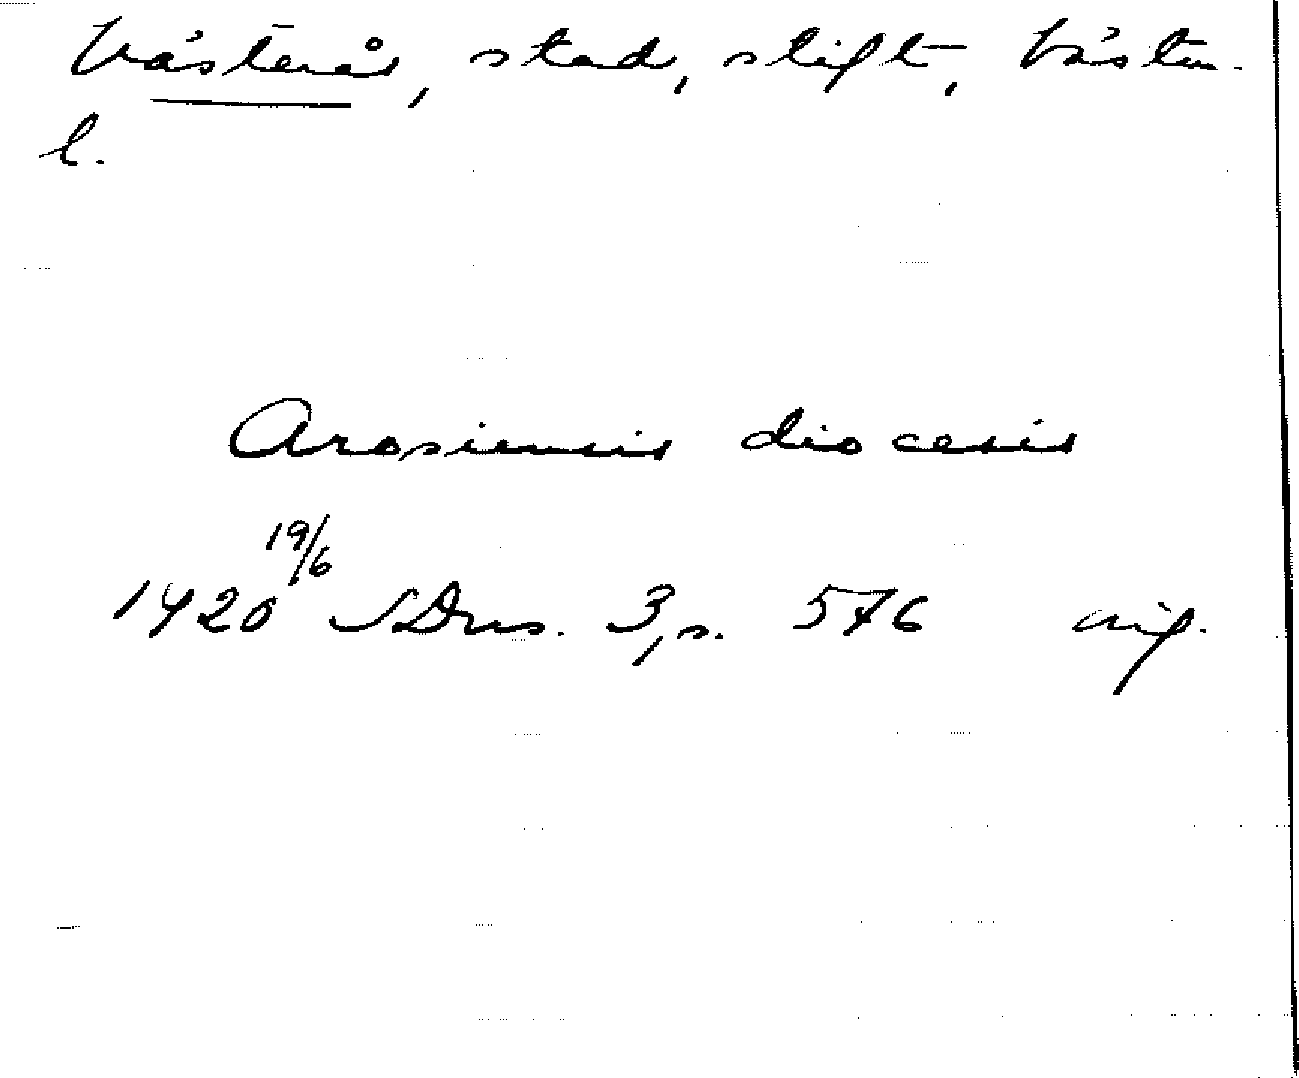 Västerås, stad, stift, Västm.
l.
Arosiensis diocesis
19/6
1420 SDns. 3, s. 576 avig.